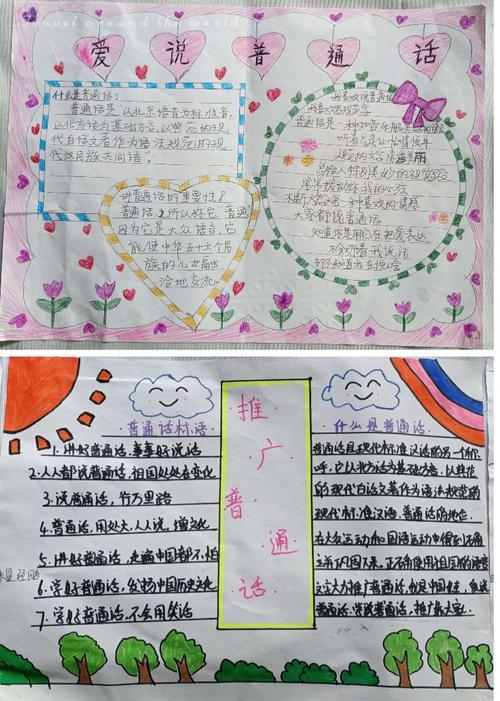 travel around the world
爱说普通话
什么是普通话?
普通话是以北京语音为标准音,
以北方话为基础方言,以典范的现
代白话文著作为语法规范的现
代汉民族共同语。
讲普通话的重要性?
普通话,所以称它"普通"
因为它是大众语言,它
能使中华五十六个民
族的儿女融
洽地交流。
我喜欢说普通话
我喜欢
普通话是一种
听着
规范的文字
总给人特别美妙的
常常拨动你我的心弦
大家都说普通话
知道你是能在把爱表达
不分
都知道我在说啥
普通话标语
1. 讲好普通话,事事好说话
2. 人人都说普通话,祖国处处有变化
3. 说普通话,行万里路
4. 普通话,用处大,人人说,增文化
5. 讲好普通话,走遍中国都不怕
6. 学好普通话,发扬中国历史文化
7. 学好普通话,不会闹笑话
推广普通话
什么是普通话。
普通话是现代标准汉语的另一个称
呼,它以北方话为基础方言,以典范
的现代白话文著作为语法规范的
现代标准汉语,普通话的地位
在大众运动和国语运动中得到不断
立并巩固下来,正确使用祖国的语言
文字大力推广普通话,
普通话,